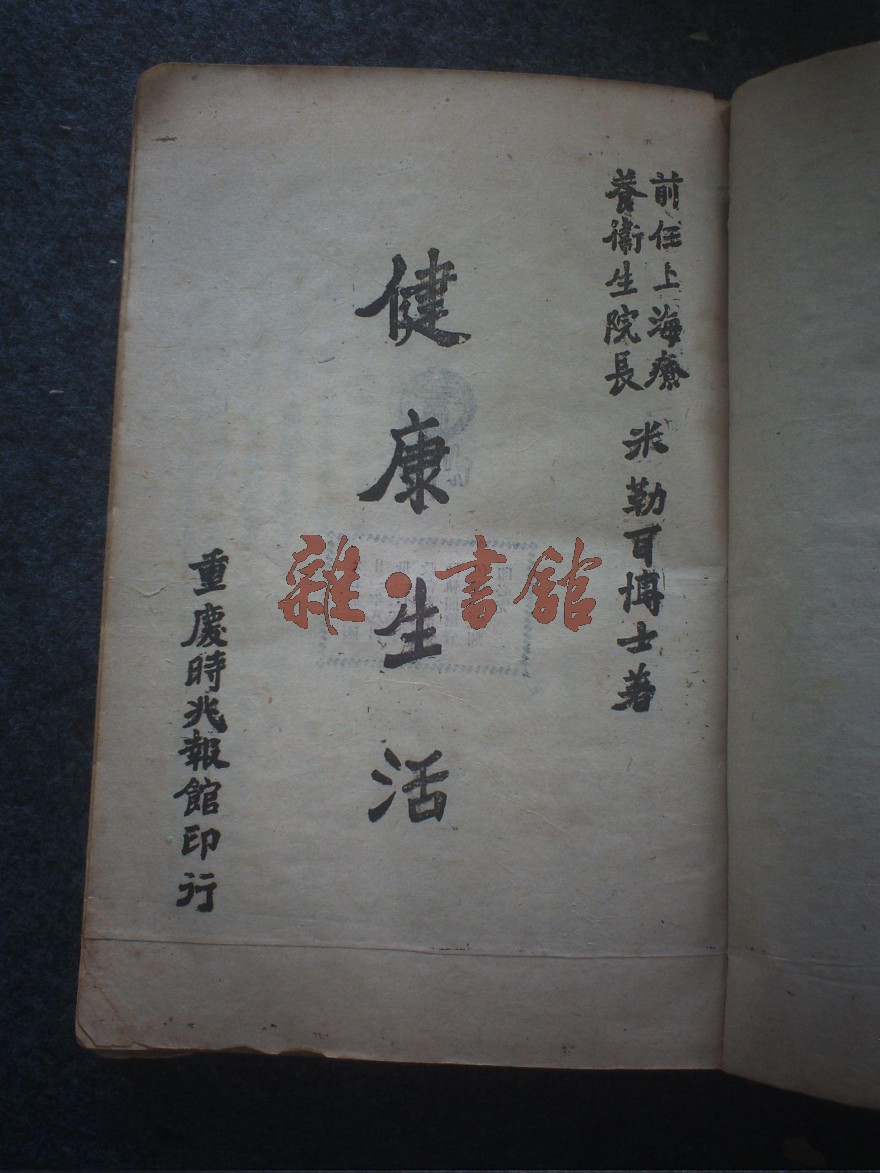 前任上海療
養衛生院長
米勒耳博士著
健康生活
重慶時兆報館印行
雜·書館